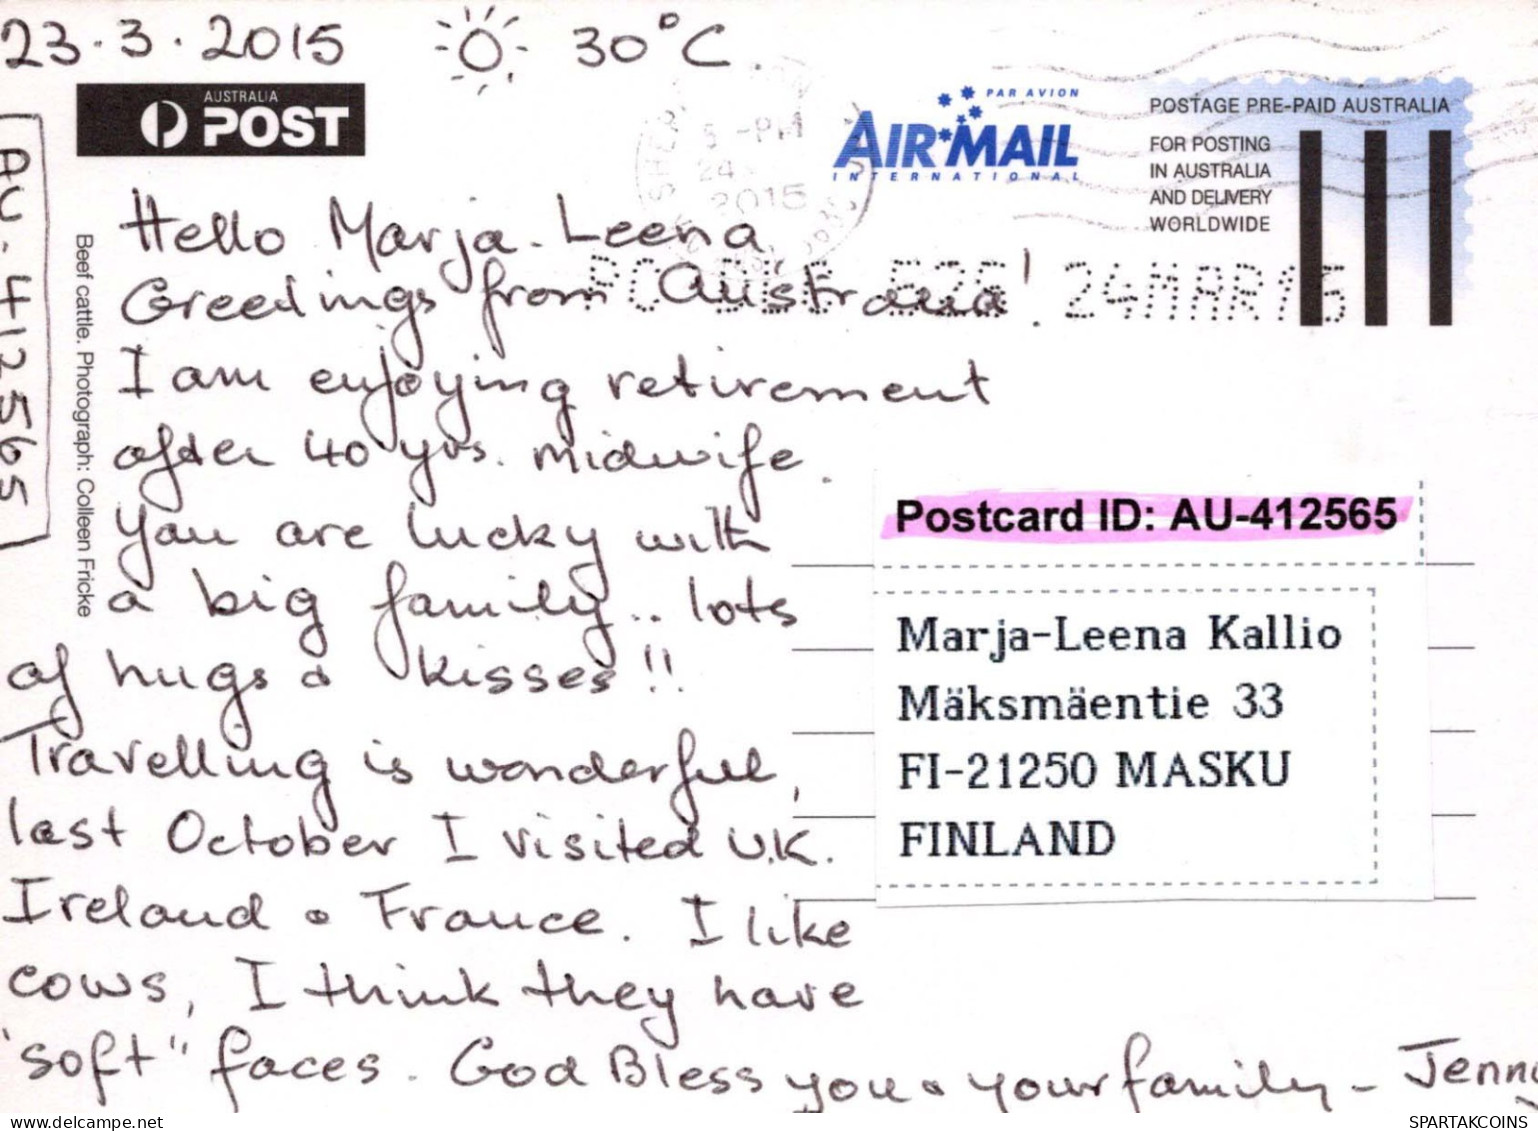 23.3.2015 30°C
AUSTRALIA
POST
PAR AVION
AIR MAIL
INTERNATIONAL
POSTAGE PRE-PAID AUSTRALIA
FOR POSTING
IN AUSTRALIA
AND DELIVERY
WORLDWIDE
5 -PM
24
2015
24MAR15
AU-412565
Beef cattle. Photograph: Colleen Fricke
Hello Marja-Leena
Greetings from Australia!
I am enjoying retirement
after 40 yrs. midwife.
You are lucky with
a big family.. lots
of hugs & kisses!!
Travelling is wonderful,
last October I visited U.K.
Ireland & France. I like
cows, I think they have
"soft" faces. God Bless you & your family - Jenny
Postcard ID: AU-412565
Marja-Leena Kallio
Mäksmäentie 33
FI-21250 MASKU
FINLAND
SPARTAKCOINS